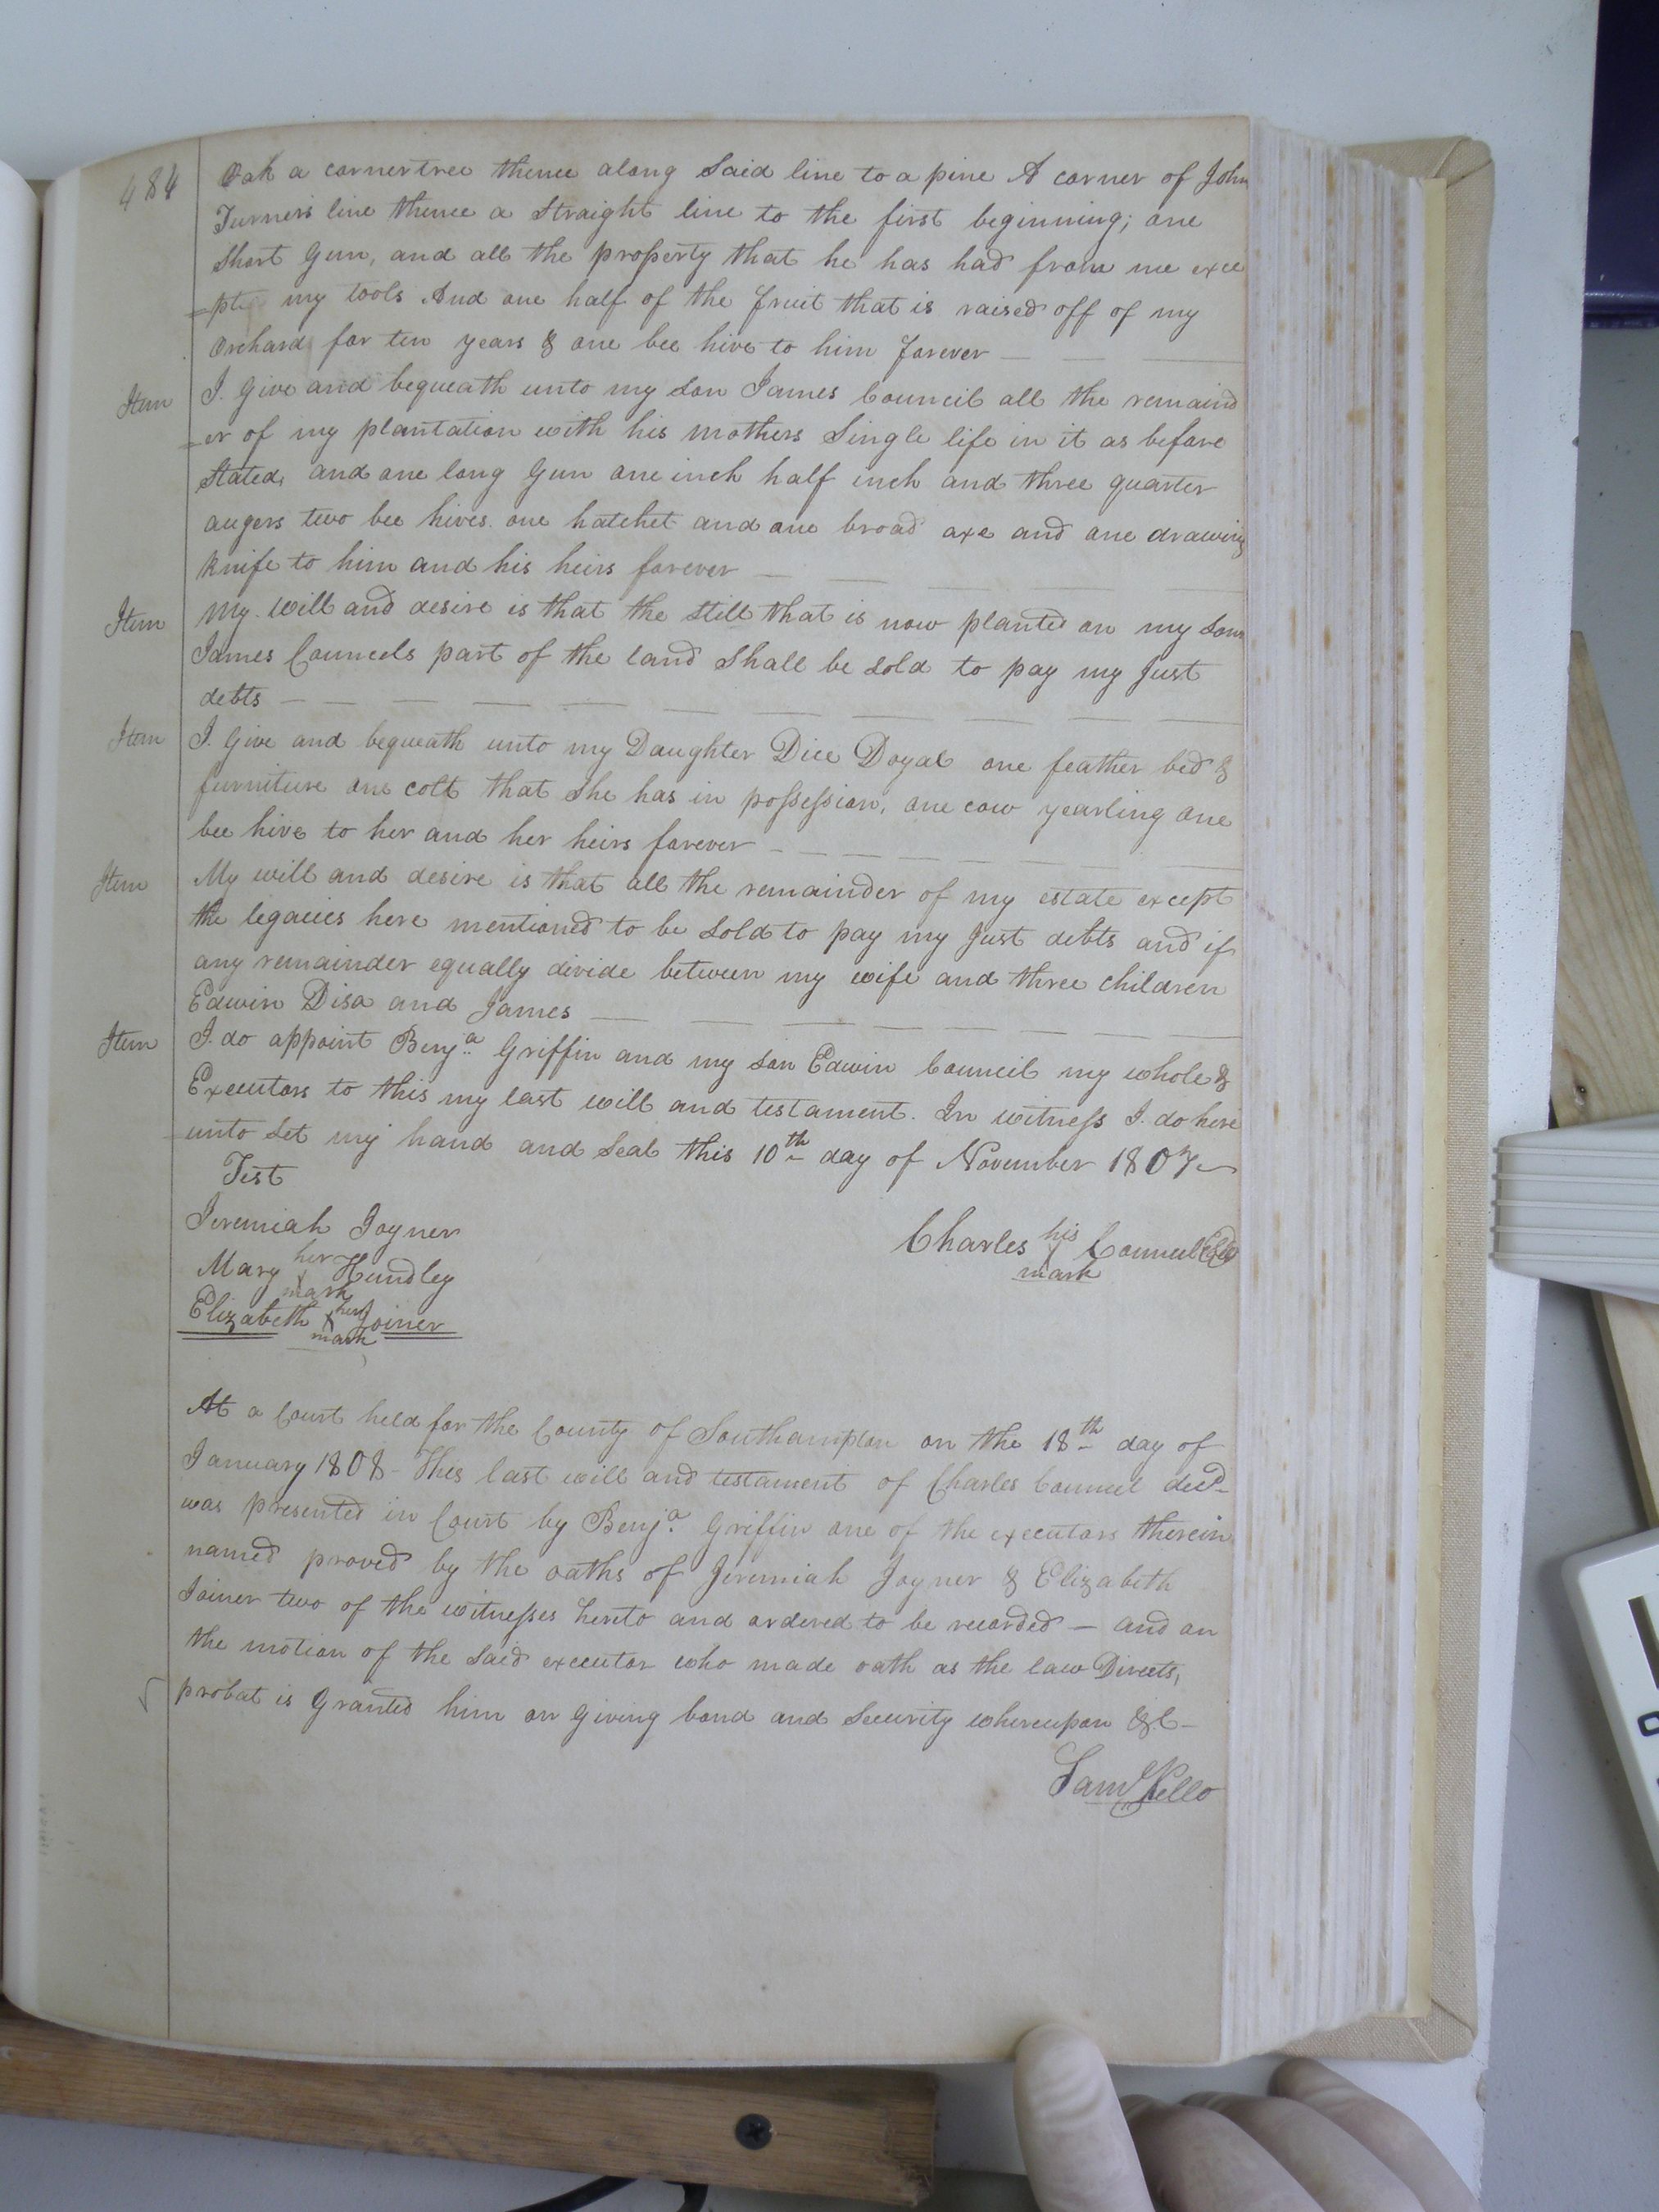 484
Oak a cornertree thence along Said line to a pine A corner of John
Turners line thence a Straight line to the first beginning; one
Short Gun, and all the property that he has had from me exce
=pting my tools And one half of the fruit that is raised off of my
Orchard for ten years & one bee hive to him forever
Item I. Give and bequeath unto my Son James Council all the remaind
=er of my plantation with his mothers Single life in it as before
Stated, and one long Gun one inch half inch and three quarter
augers two bee hives. one hatchet and one broad axe and one drawing
knife to him and his heirs forever
Item My. Will and desire is that the Still that is now planted on my Sons
James Councels part of the land Shall be Sold to pay my Just
debts
Item I. Give and bequeath unto my Daughter Dice Doyal one feather bed &
furniture one colt that She has in possession, one cow yearling one
bee hive to her and her heirs forever
Item My will and desire is that all the remainder of my estate except
the legacies here mentioned to be Sold to pay my Just debts and if
any remainder equally divide between my wife and three children
Edwin Disa and James
Item I. do appoint Benja. Griffin and my Son Edwin Council my whole &
Executors to this my last will and testament. In witness I. do here
=unto Set my hand and Seal this 10th day of November 1807
Test
Jeremiah Joyner
Charles his X mark Councel
Mary her X mark Hundley
Elizabeth her X mark Joiner
At a Court held for the County of Southampton on the 18th day of
January 1808 - This last will and testament of Charles Councel decd
was presented in Court by Benja. Griffin one of the executors therein
named proved by the oaths of Jeremiah Joyner & Elizabeth
Joiner two of the witnesses hereto and ordered to be recorded — and on
the motion of the Said executor who made oath as the law Directs,
probat is Granted him on giving bond and Security whereupon &C -
Saml Kello